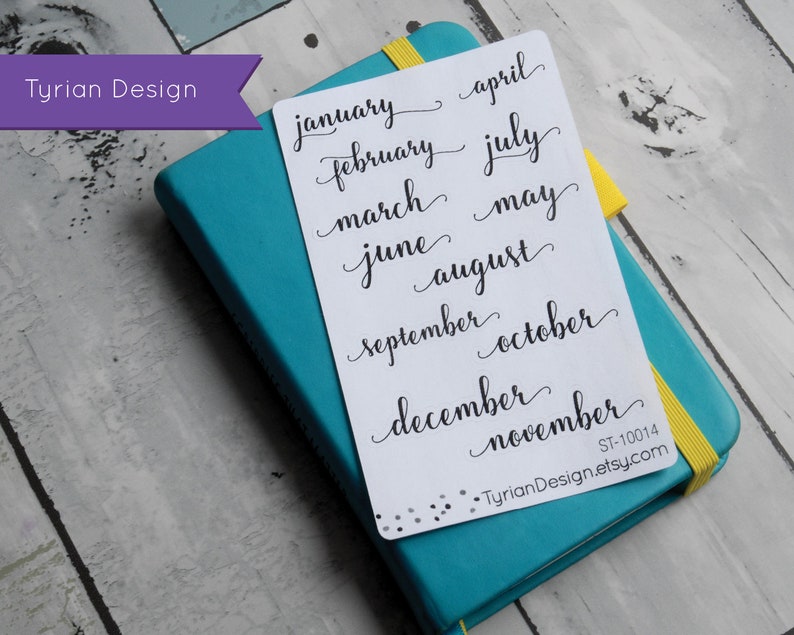 Tyrian Design
january
april
february
july
march
may
june
august
september
october
december
november
ST-10014
TyrianDesign.etsy.com